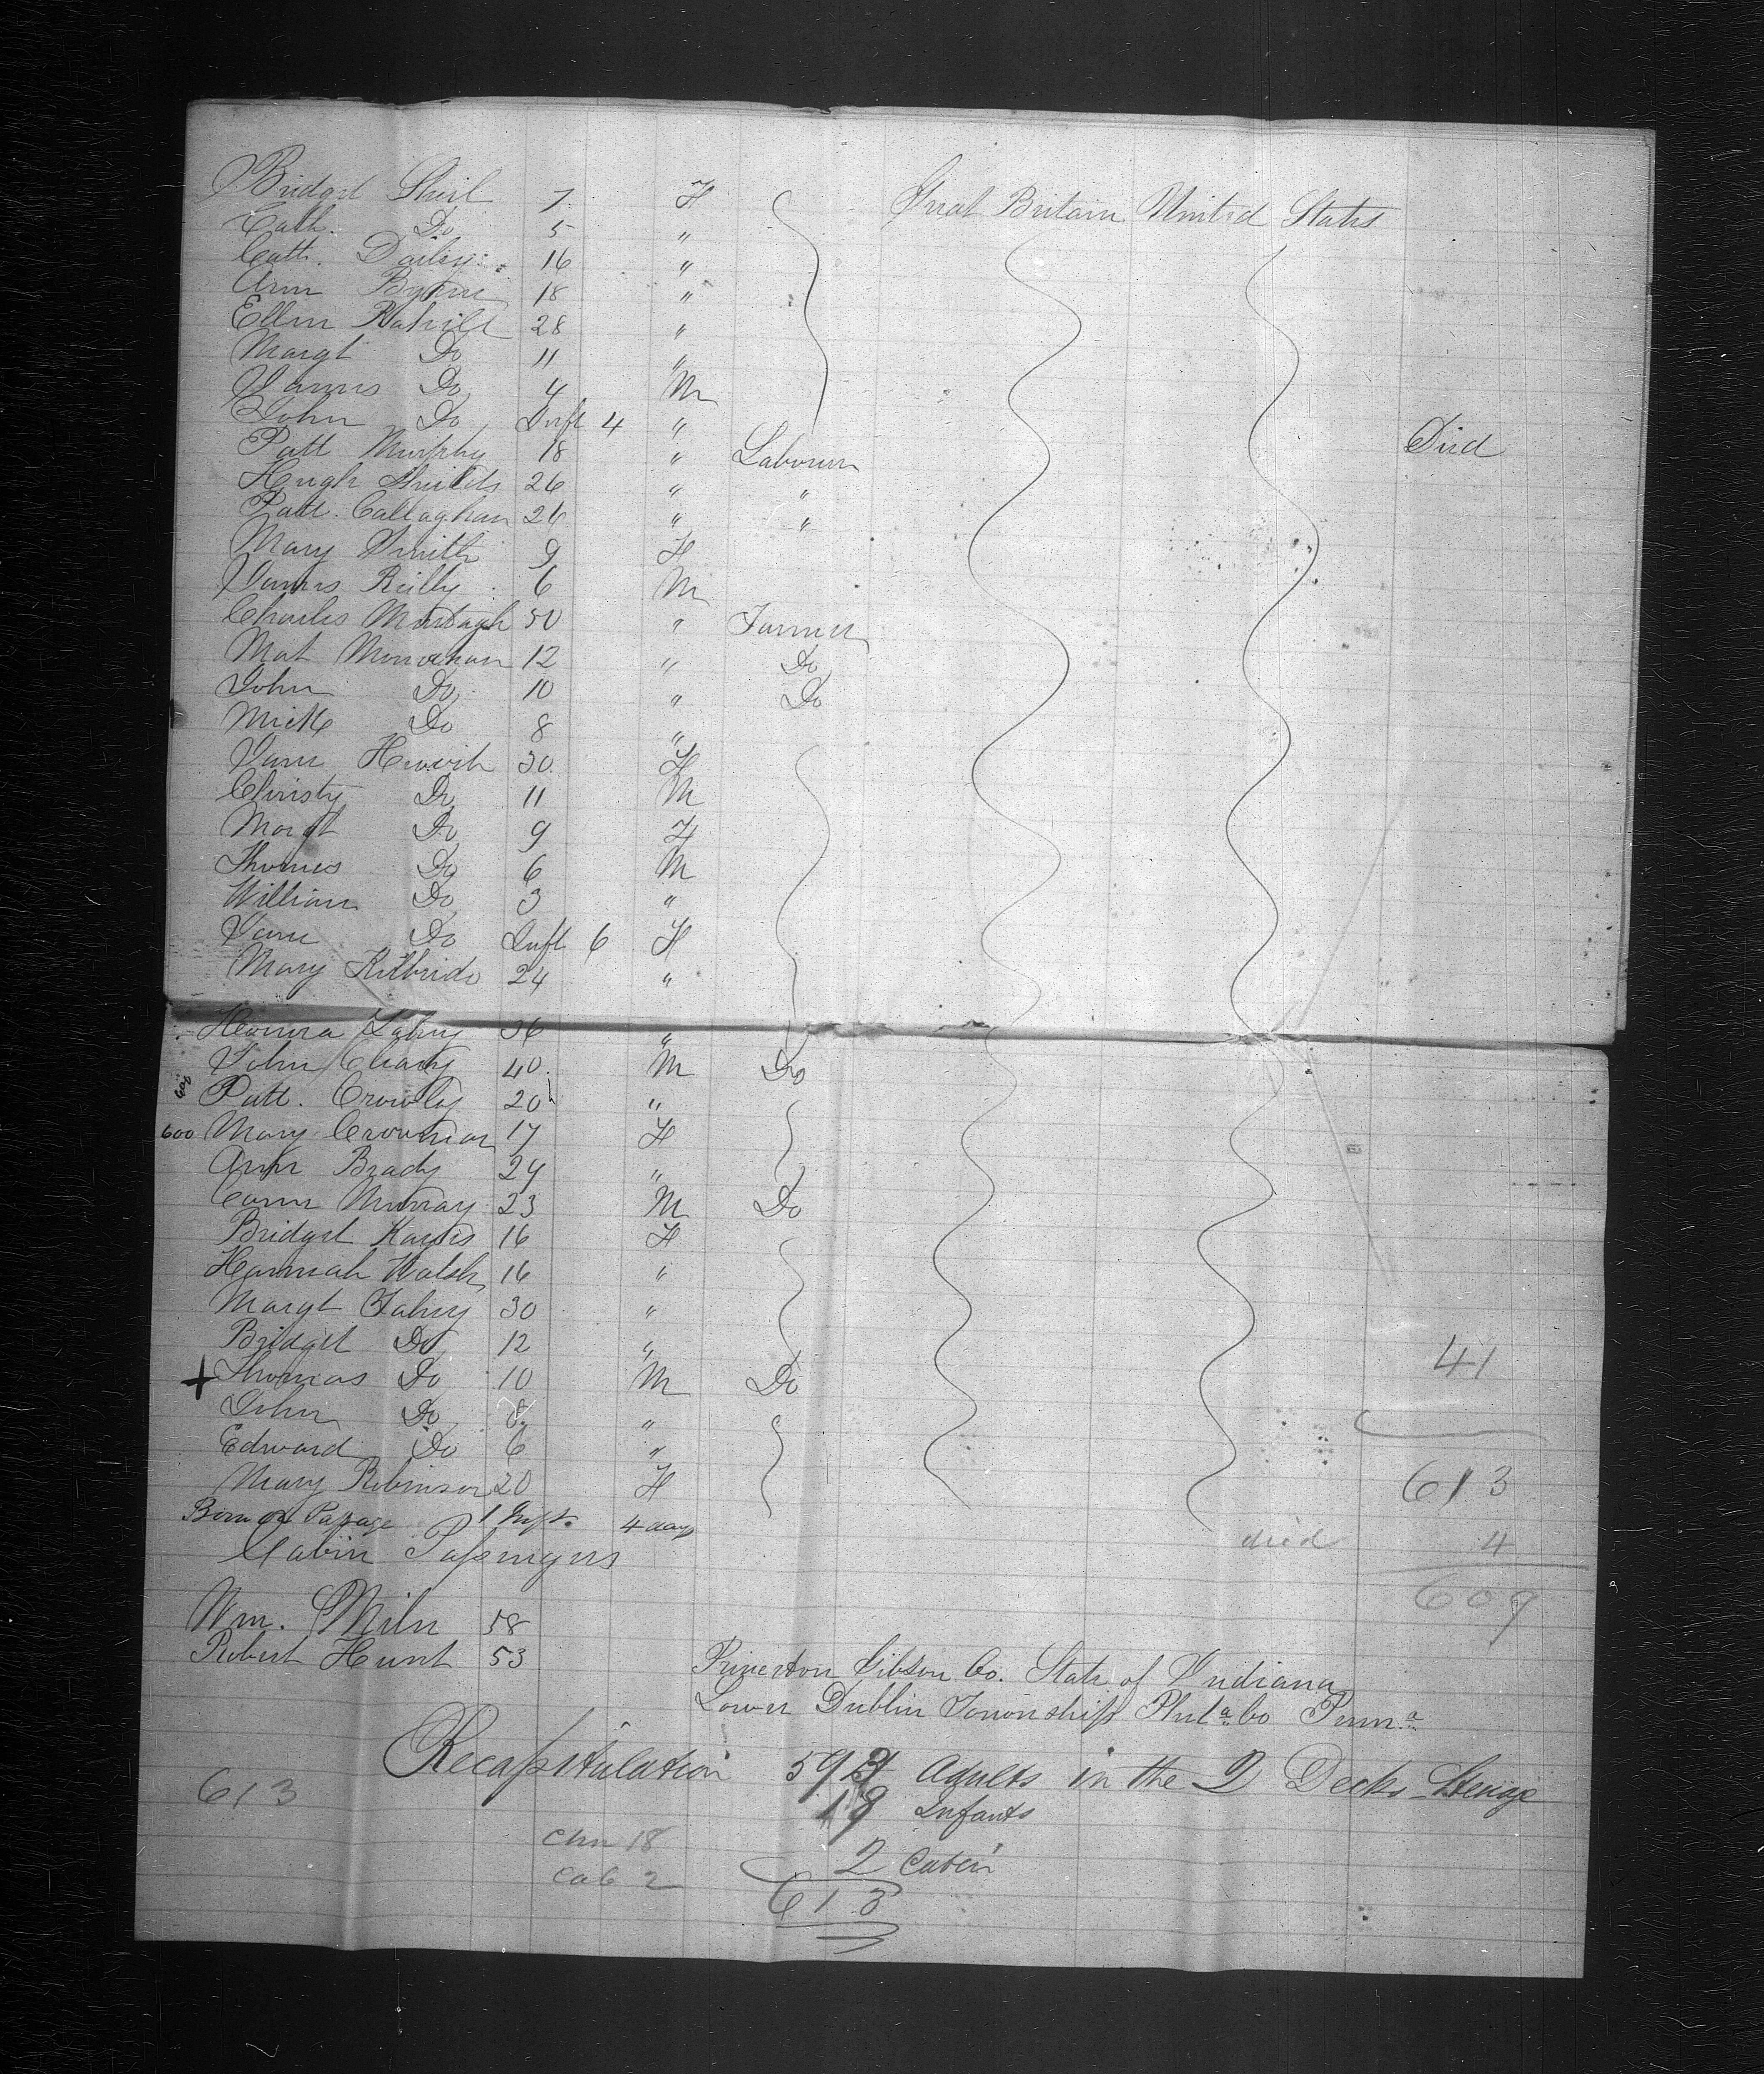 Bridget Sheil 7 F Great Britain United States
Cath. Do 5 "
Cath. Dailey 16 "
Ann Byrne 18 "
Ellen Kahill 28 "
Margt Do 11 "
James Do 4 M
John Do Inft 4 "
Patt Murphy 18 " Labourer Died
Hugh Shields 26 " "
Patt. Callaghan 26 " "
Mary Smith 9 F
James Reilly 6 M
Charles Murtagh 50 " Farmer
Mat Monahan 12 " Do
John Do 10 " Do
Mick Do 8 "
Jane 30 F
Christy Do 11 M
Margt Do 9 F
Thomas Do 6 M
William Do 3 "
Jane Do Inft 6 F
Mary Kilbride 24 "
Honora Fahey 36 "
John Cleary 40 M Do
Patt. Crowley 20 "
600 Mary 17 F
Ann Brady 24 "
Murray 23 M Do
Bridget Hayes 16 F
Hannah Walsh 16 "
Margt Fahey 30 "
Bridget Do 12 "
+ Thomas Do 10 M Do 41
John Do 8 "
Edward Do 6 "
Mary Robinson 20 F 613
Born on Passage 1 Inft. 4 days died 4
Cabin Passengers 609
Wm. Miln 58
Robert Hunt 53 Princeton Gibson Co. State of Indiana
Lower Dublin Township Phila Co Penna
Recapitulation 593 Adults in the 2 Decks Steerage
613 18 Infants
Chn 18 2 Cabin
Cab 2 613